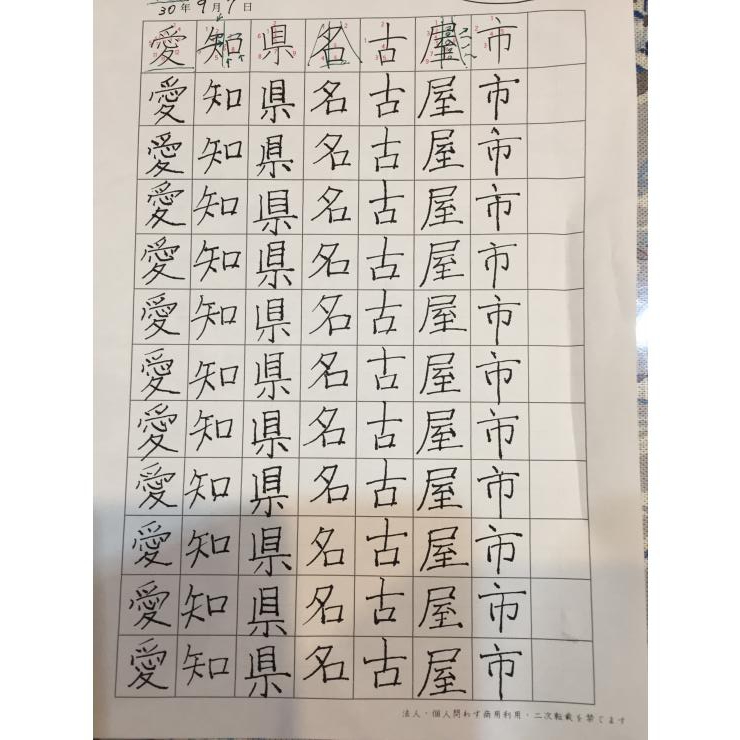 30年9月7日
愛知県名古屋市
愛知県名古屋市
愛知県名古屋市
愛知県名古屋市
愛知県名古屋市
愛知県名古屋市
愛知県名古屋市
愛知県名古屋市
愛知県名古屋市
愛知県名古屋市
愛知県名古屋市
愛知県名古屋市
法人・個人問わず商用利用・二次転載を禁じます